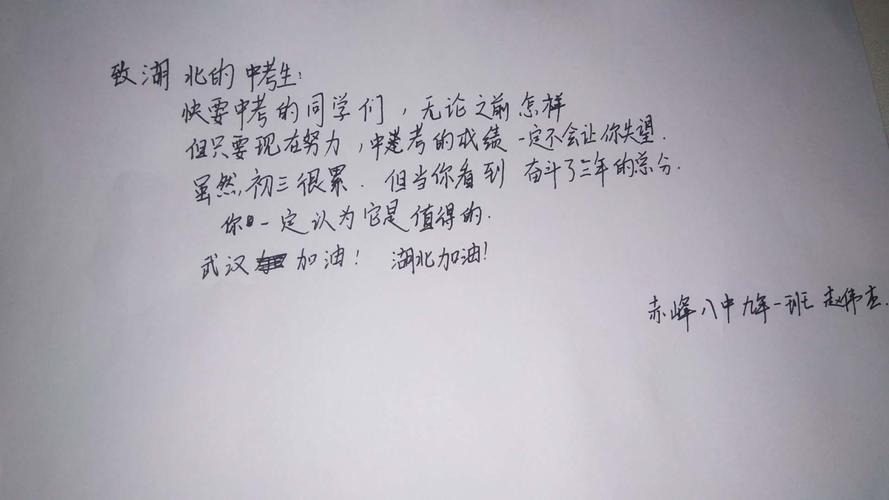 致湖北的中考生：
快要中考的同学们，无论之前怎样
但只要现在努力，中考的成绩一定不会让你失望．
虽然，初三很累．但当你看到奋斗了三年的总分．
你一定认为它是值得的．
武汉加油！湖北加油！
赤峰八中九年一班 赵伟杰．